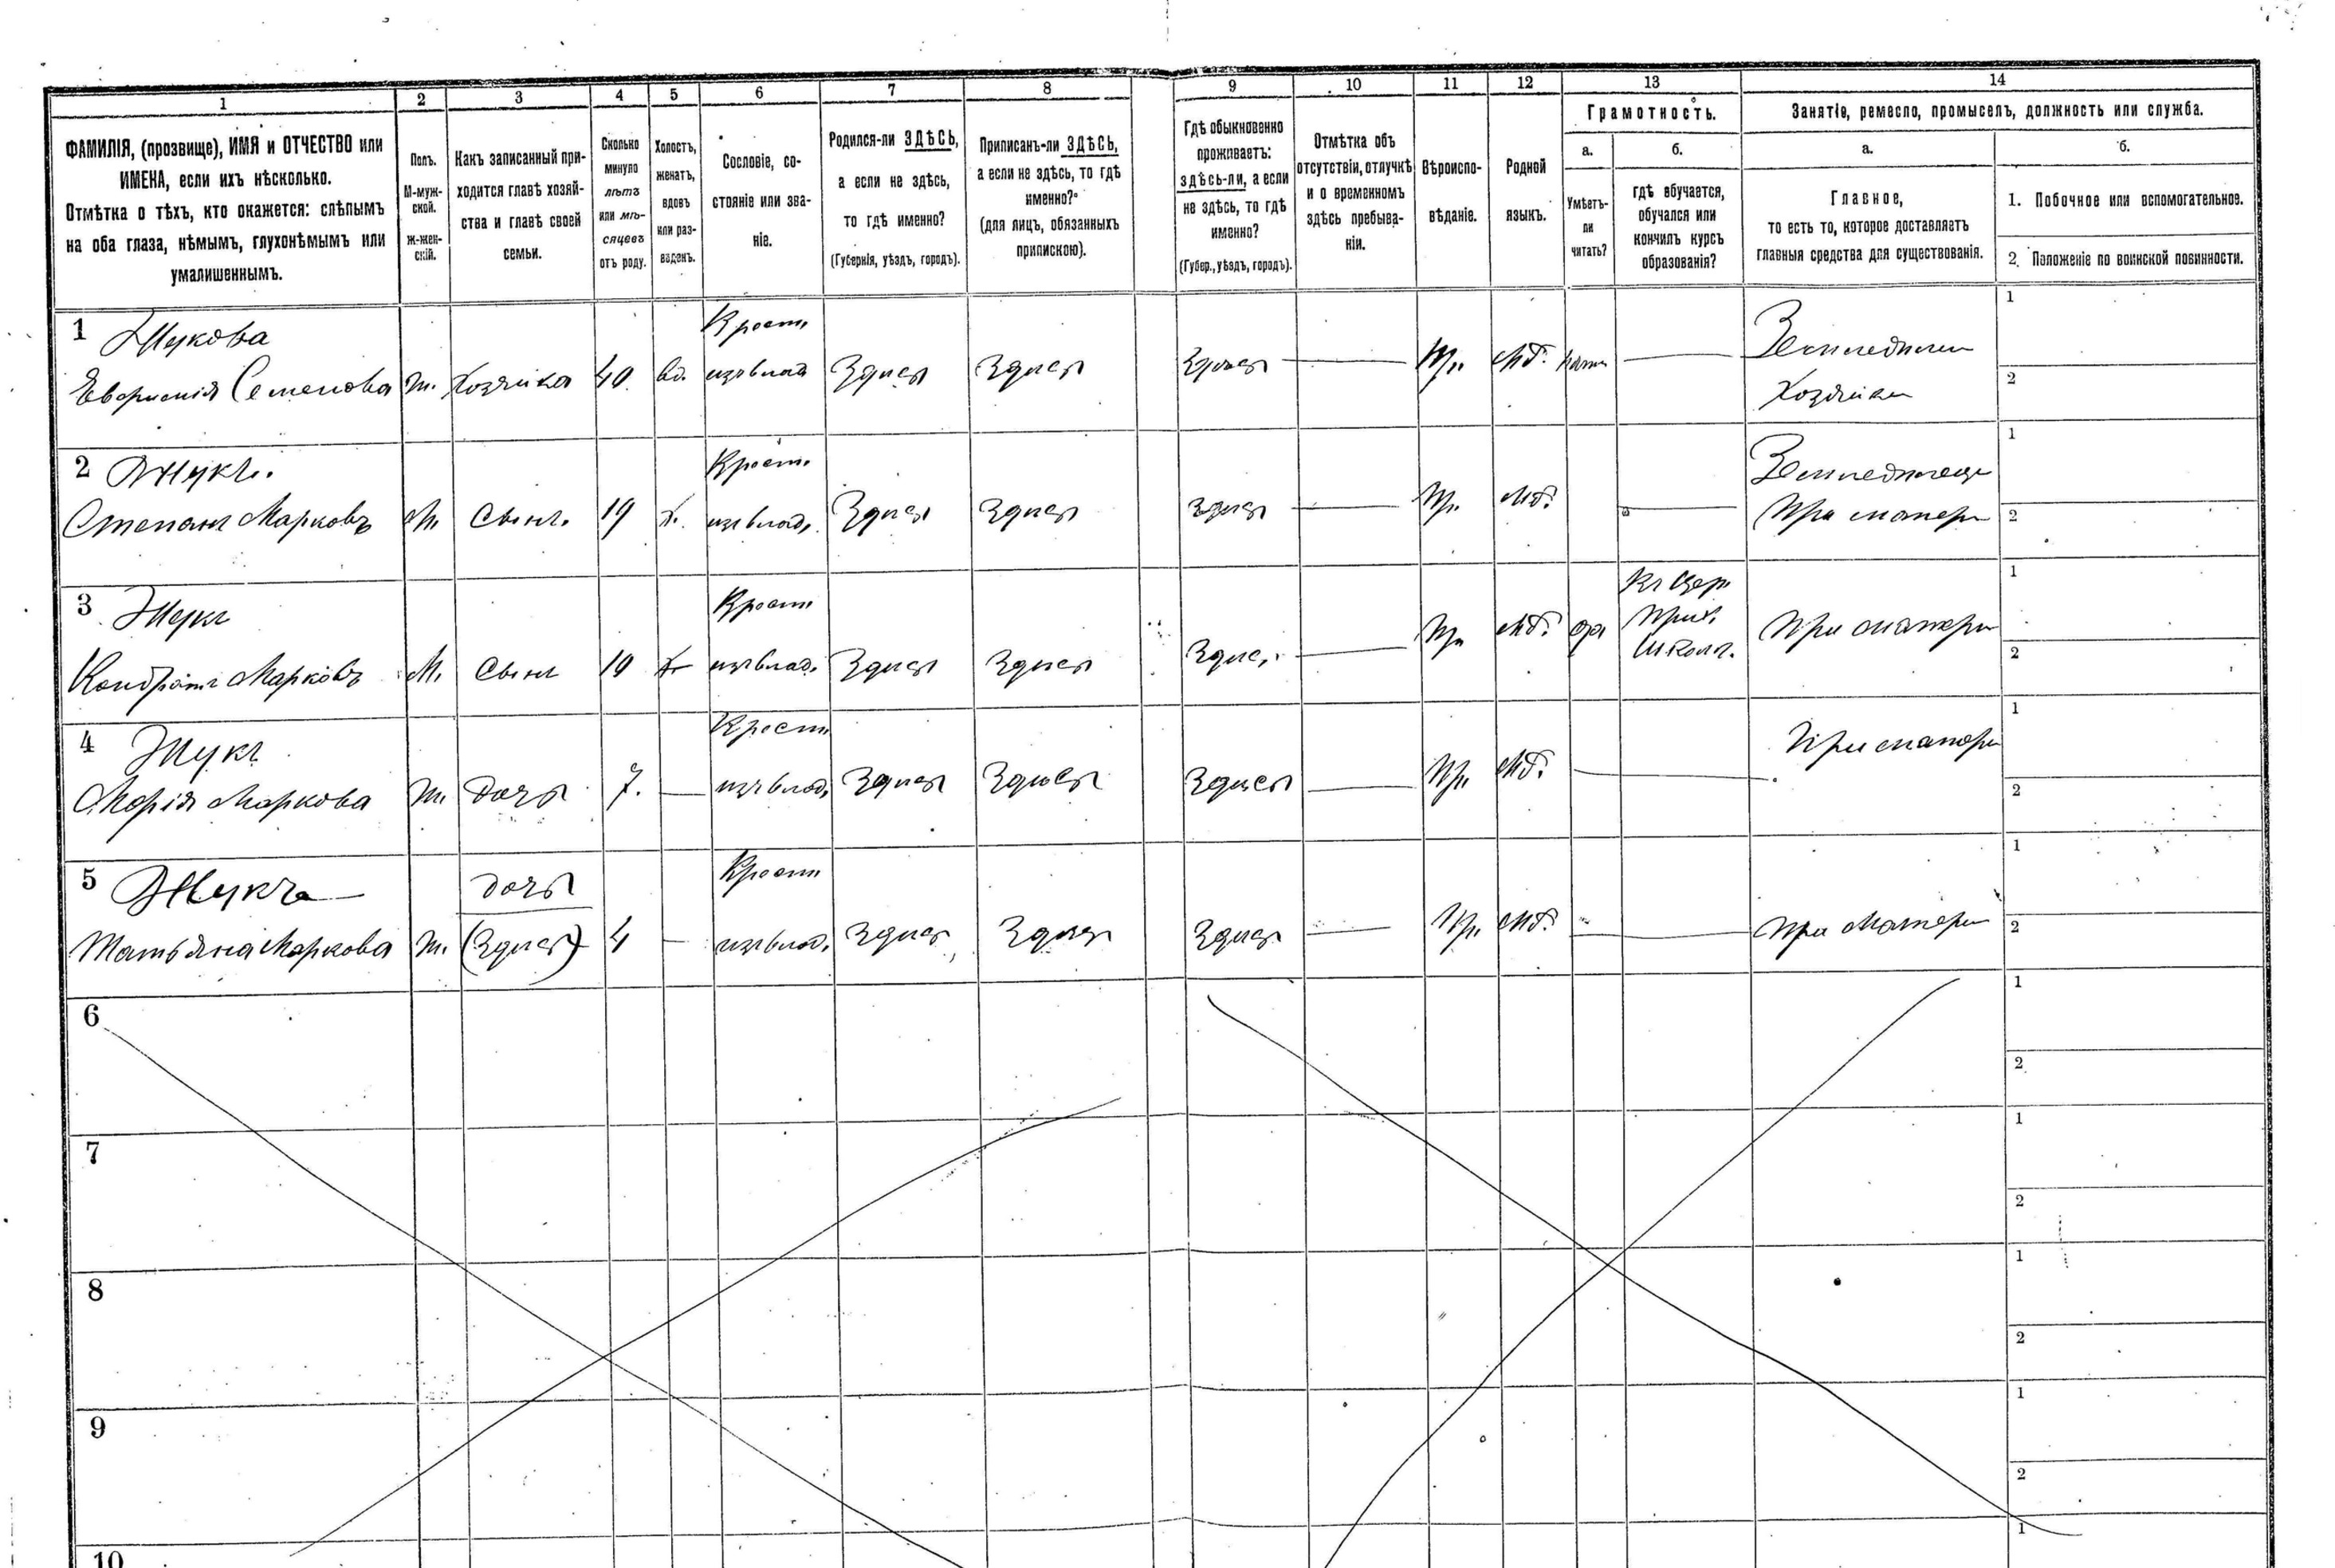 1 2 3 4 5 6 7 8 9 10 11 12 13 14
ФАМИЛІЯ, (прозвище), ИМЯ и ОТЧЕСТВО или
ИМЕНА, если ихъ нѣсколько.
Отмѣтка о тѣхъ, кто окажется: слѣпымъ
на оба глаза, нѣмымъ, глухонѣмымъ или
умалишеннымъ.
Полъ.
М-муж-
ской.
Ж-жен-
скій.
Какъ записанный при-
ходится главѣ хозяй-
ства и главѣ своей
семьи.
Сколько
минуло
лѣтъ
или мѣ-
сяцевъ
отъ роду.
Холостъ,
женатъ,
вдовъ
или раз-
веденъ.
Сословіе, со-
стояніе или зва-
ніе.
Родился-ли ЗДѢСЬ,
а если не здѣсь,
то гдѣ именно?
(Губернія, уѣздъ, городъ).
Приписанъ-ли ЗДѢСЬ,
а если не здѣсь, то гдѣ
именно?
(для лицъ, обязанныхъ
припискою).
Гдѣ обыкновенно
проживаетъ:
здѣсь-ли, а если
не здѣсь, то гдѣ
именно?
(Губер., уѣздъ, городъ).
Отмѣтка объ
отсутствіи, отлучкѣ
и о временномъ
здѣсь пребыва-
ніи.
Вѣроиспо-
вѣданіе.
Родной
языкъ.
Грамотность.
а.
Умѣетъ-
ли
читать?
б.
гдѣ обучается,
обучался или
кончилъ курсъ
образованія?
Занятіе, ремесло, промыселъ, должность или служба.
а.
Главное,
то есть то, которое доставляетъ
главныя средства для существованія.
б.
1. Побочное или вспомогательное.
2. Положеніе по воинской повинности.
1 Жукова Крест. 1
Евфимія Семенова ж. Хозяйка 40 вд. Здѣсь Здѣсь Здѣсь — Пр. Мб. — Хозяйка 2
2 Жукъ. Крест. 1
Степанъ Марковъ М. Сынъ 19 х. Здѣсь Здѣсь Здѣсь — Пр. Мб. — При матери 2
3 Жукъ Крест. Церк. Прих. Школ. 1
Кондратъ Марковъ М. Сынъ 10 х Здѣсь Здѣсь Здѣсь — Пр. Мб. При матери 2
4 Жукъ Крест. При матери 1
Марія Маркова ж. дочь 7. — Здѣсь Здѣсь Здѣсь — Пр. Мб. — 2
5 Жукъ дочь Крест. 1
Татьяна Маркова ж. (Здѣсь) 4 — Здѣсь Здѣсь Здѣсь — Пр. Мб. — При матери 2
6 1
2
7 1
2
8 1
2
9 1
2
10 1